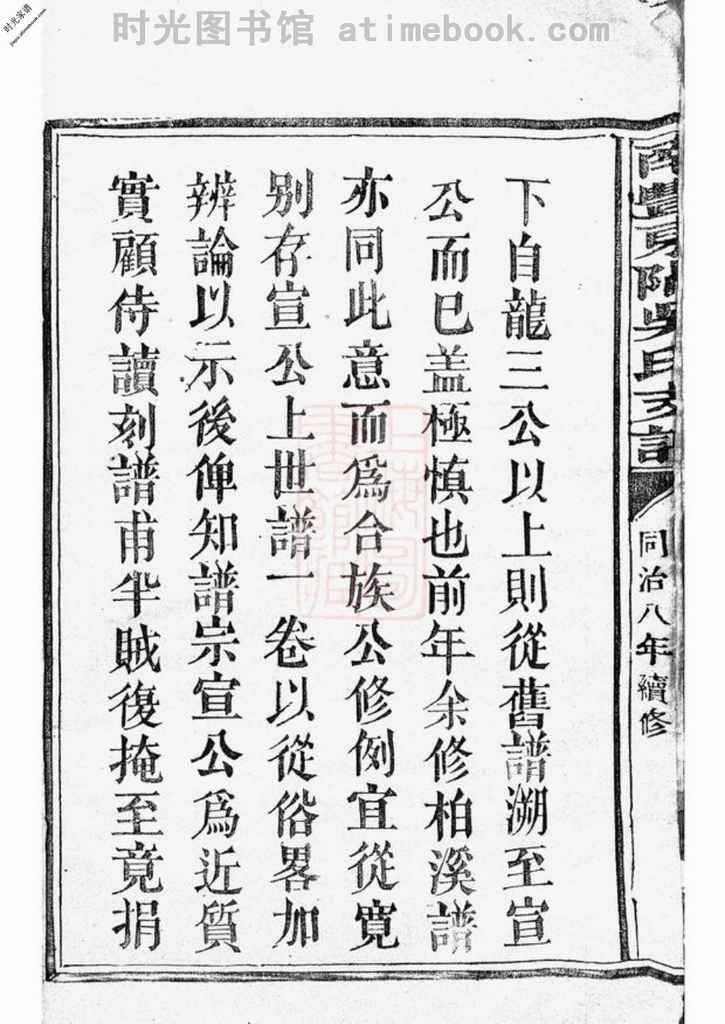 时光图书馆 atimebook.com
时光家谱
南豐東隅吳氏支譜
同治八年續修
下自龍三公以上則從舊譜溯至宣
公而已盖極慎也前年余修柏溪譜
亦同此意而爲合族公修例宜從寬
别存宣公上世譜一卷以從俗畧加
辨論以示後俾知譜宗宣公爲近質
實顧侍讀刻譜甫半賊復掩至竟捐